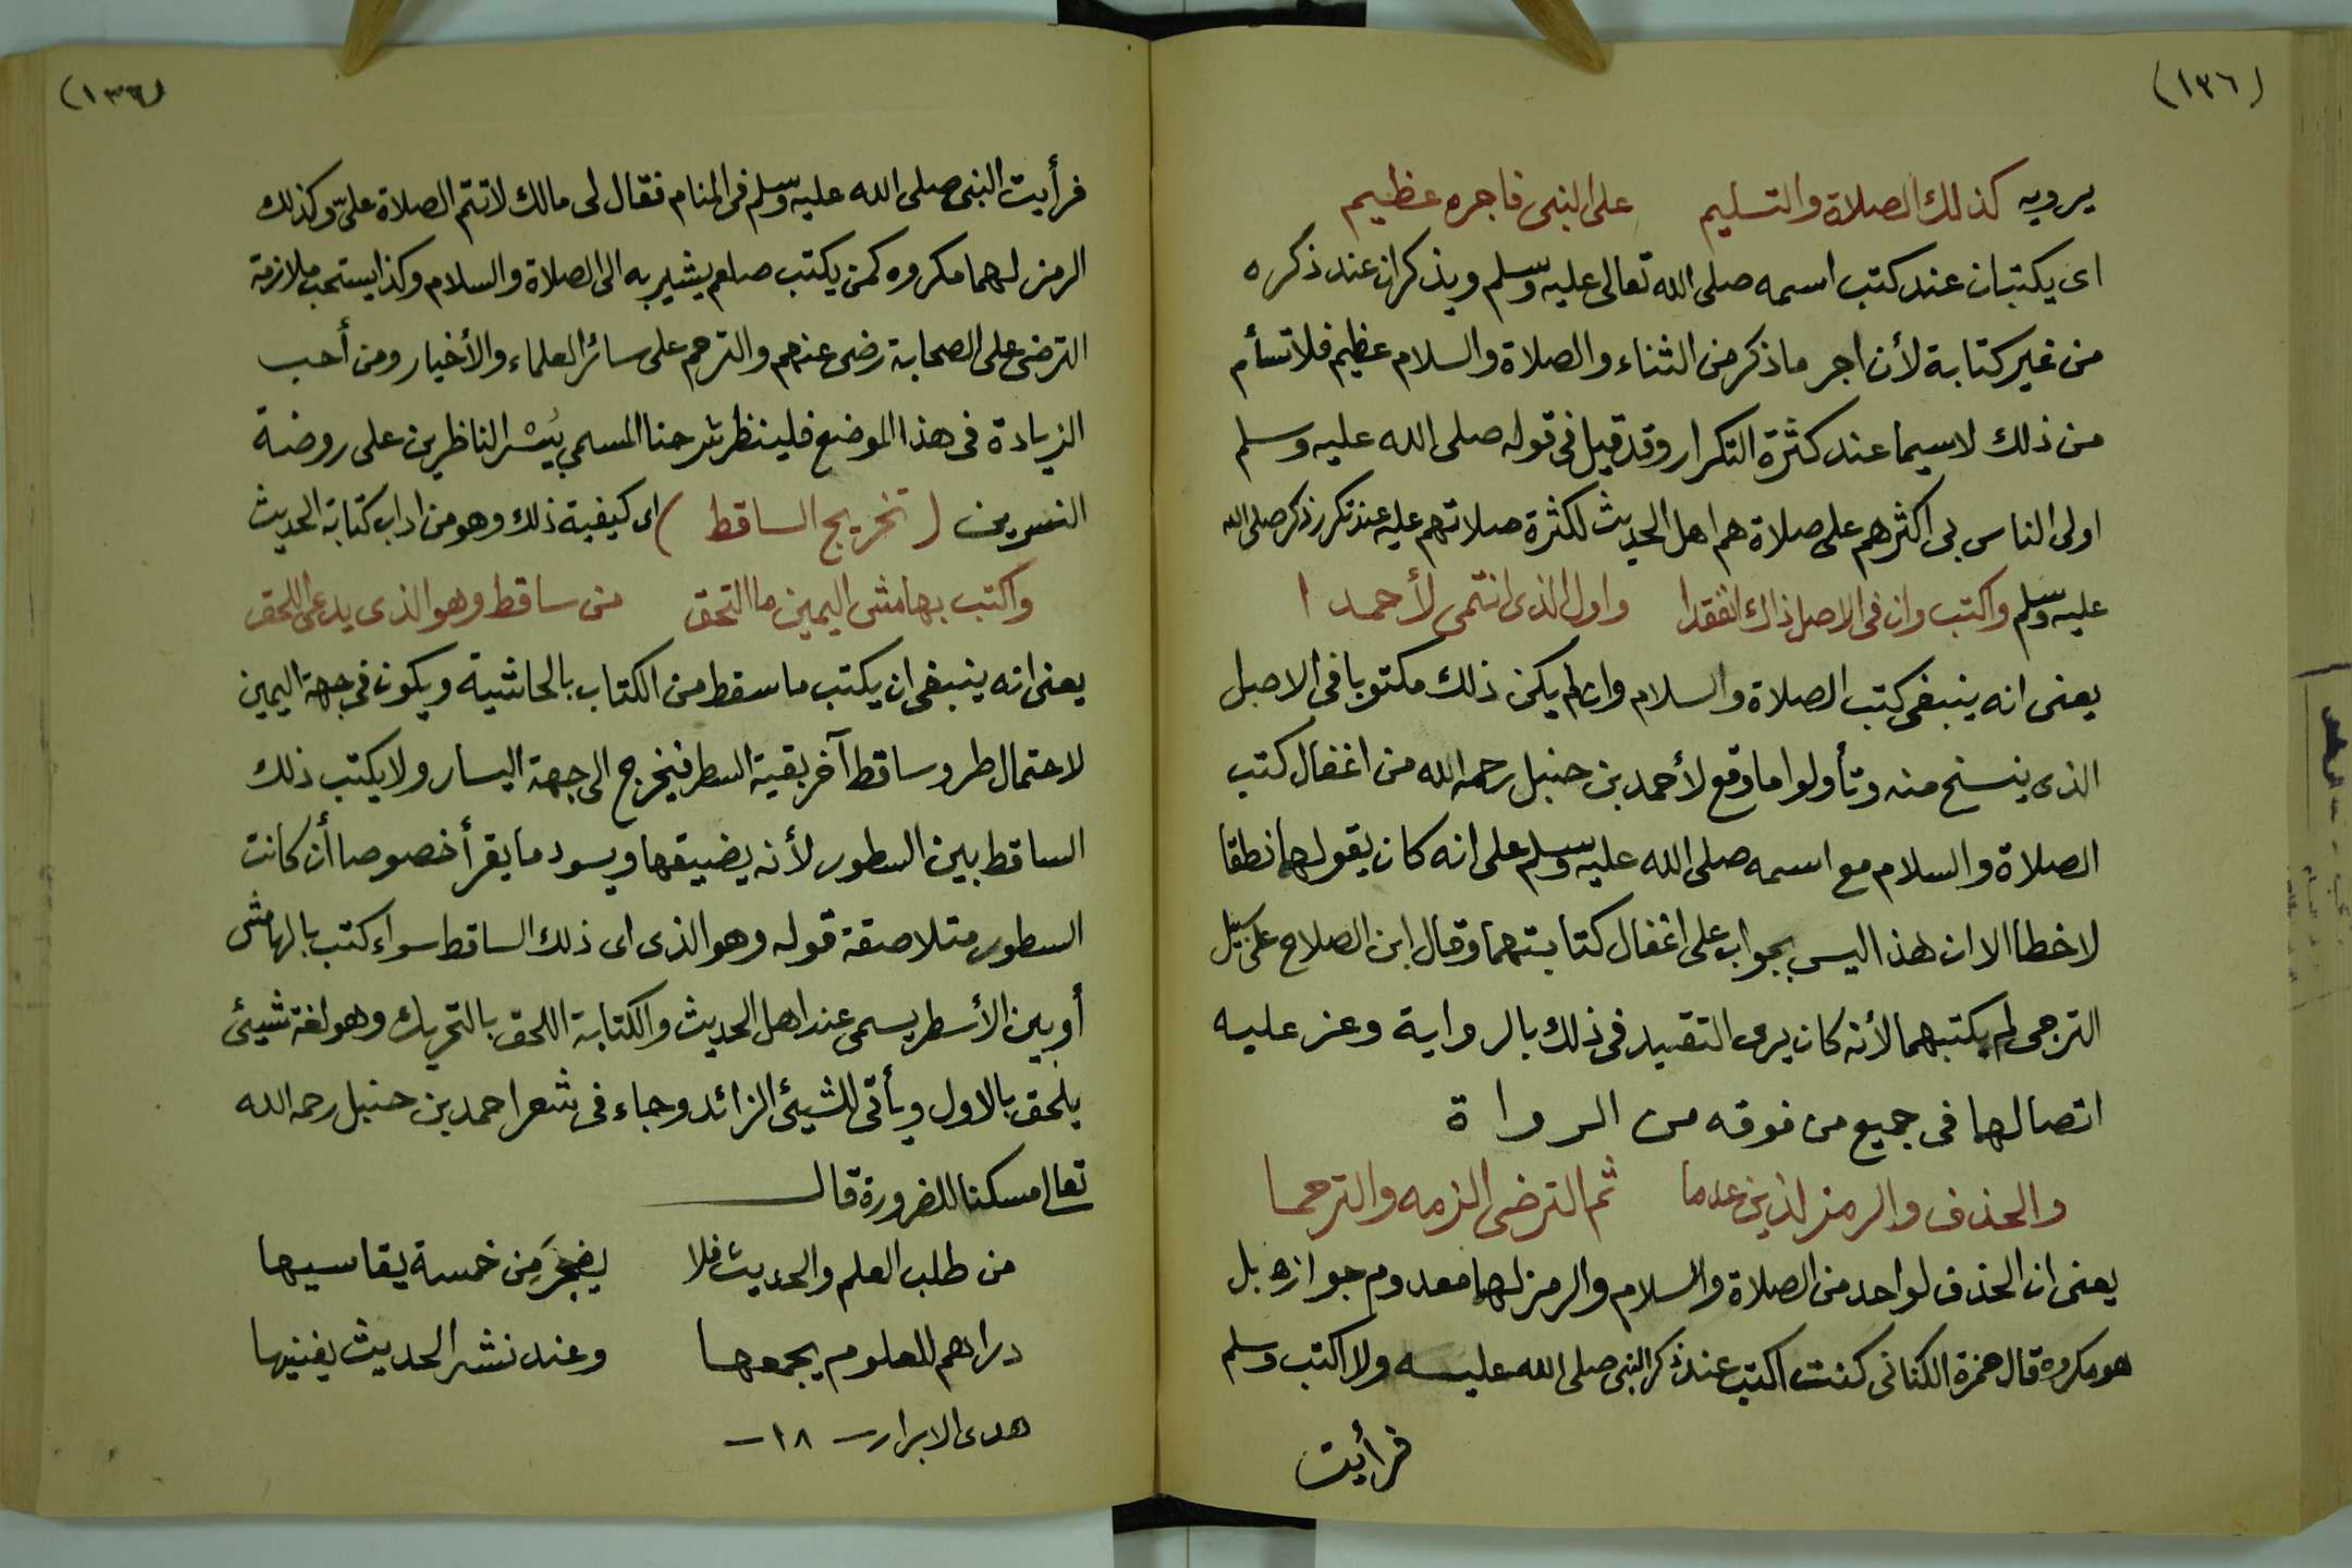 (١٣٦)
يرويه كذلك الصلاة والتسليم على النبى فاجره عظيم
اى يكتبان عند كتب اسمه صلى الله تعالى عليه وسلم ويذكران عند ذكره
من غير كتابة لأن اجر ما ذكر من الثناء والصلاة والسلام عظيم فلا تسأم
من ذلك لاسيما عند كثرة التكرار وقد قيل فى قوله صلى الله عليه وسلم
اولى الناس بى اكثرهم على صلاة هم اهل الحديث لكثرة صلاتهم عليه عند تكرر ذكر صلى الله
عليه وسلم واكتب وان فى الاصل ذاك انفقدا واول الذى انتمى لأحمدا
يعنى انه ينبغى كتب الصلاة والسلام وان لم يكن ذلك مكتوبا فى الاصل
الذى ينسخ منه وتأولوا ما وقع لأحمد بن حنبل رحمه الله من اغفال كتب
الصلاة والسلام مع اسمه صلى الله عليه وسلم على انه كان يقولهما نطقا
لا خطا الا ان هذا ليس بجواب على اغفال كتابتهما وقال ابن الصلاح على سبيل
الترجى لم يكتبهما لأنه كان يرى التقييد فى ذلك بالرواية وعز عليه
اتصالها فى جميع من فوقه من الرواة
والحذف والرمز لذين عدما ثم الترضى الزمه والترحما
يعنى ان الحذف لواحد من الصلاة والسلام والرمز لهما معدوم جوازه بل
هو مكروه قال حمزة الكنانى كنت اكتب عند ذكر النبى صلى الله عليه ولا اكتب وسلم
فرأيت
(١٣٦)
فرأيت النبى صلى الله عليه وسلم فى المنام فقال لى مالك لا تتم الصلاة علىّ وكذلك
الرمز لهما مكروه كمن يكتب صلعم يشير به الى الصلاة والسلام وكذا يستحب ملازمة
الترضى على الصحابة رضى عنهم والترحم على سائر العلماء والأخيار ومن أحب
الزيادة فى هذا الموضع فلينظر شرحنا المسمى بيسر الناظرين على روضة
النسرين (تخريج الساقط) اى كيفية ذلك وهو من اداب كتابة الحديث
واكتب بهامش اليمين ما التحق من ساقط وهو الذى يدعى اللحق
يعنى انه ينبغى ان يكتب ما سقط من الكتاب بالحاشية ويكون فى جهة اليمين
لاحتمال طرو ساقط آخر بقية السطر فيخرج الى جهة اليسار ولا يكتب ذلك
الساقط بين السطور لأنه يضيقها ويسود ما يقرأ خصوصا أن كانت
السطور متلاصقة قوله وهو الذى اى ذلك الساقط سواء كتب بالهامش
أو بين الأسطر يسمى عند اهل الحديث والكتابة اللحق بالتحريك وهو لغة شيئ
يلحق بالاول ويأتى للشيئ الزائد وجاء فى شعر احمد بن حنبل رحمه الله
تعالى مسكنا للضرورة قال
من طلب العلم والحديث فلا يضجر من خمسة يقاسيها
دراهم للعلوم يجمعها وعند نشر الحديث يفنيها
هدى الابرار – ١٨ –